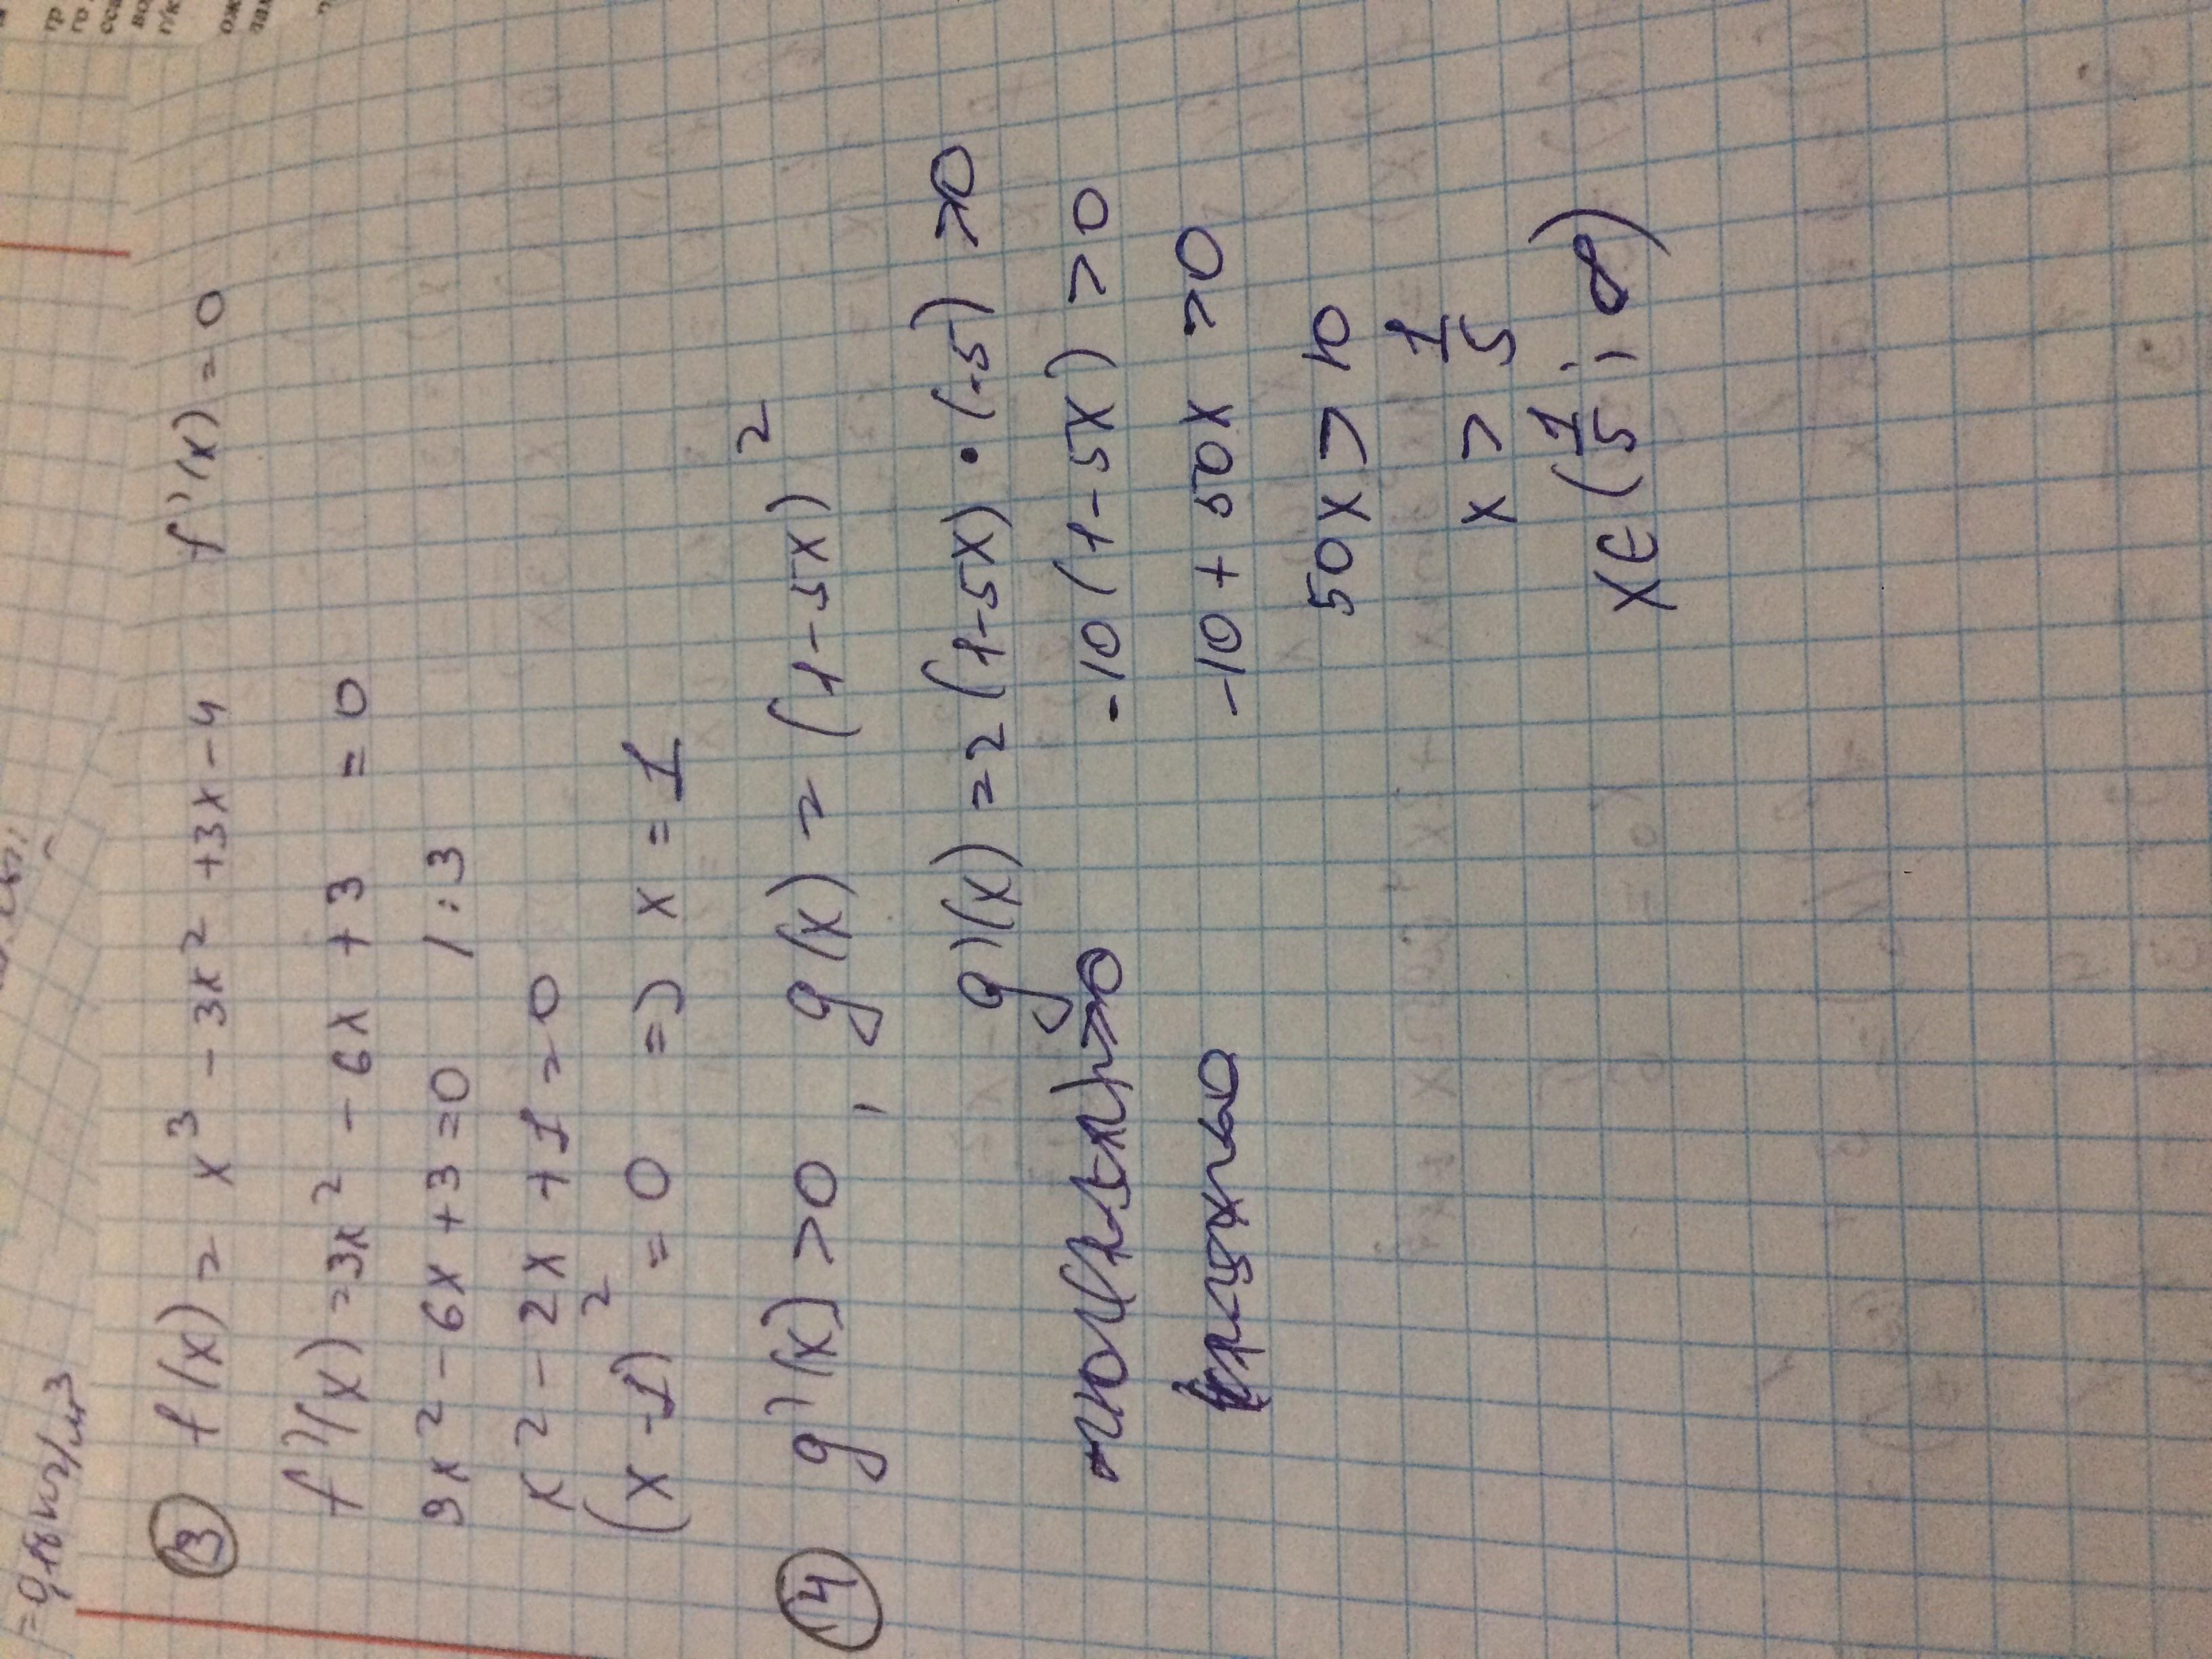 = 0,18 кг/м³
③ f(x) = x³ - 3x² + 3x - 4 f'(x) = 0
f'(x) = 3x² - 6x + 3 = 0
3x² - 6x + 3 = 0 / : 3
x² - 2x + 1 = 0
(x - 1)² = 0 => x = 1
④ g'(x) > 0 , g(x) = (1 - 5x)²
g'(x) = 2(1 - 5x) • (-5) > 0
-10(1 - 5x) > 0
-10 + 50x > 0
50x > 10
x > 1/5
x ∈ (1/5 ; ∞)